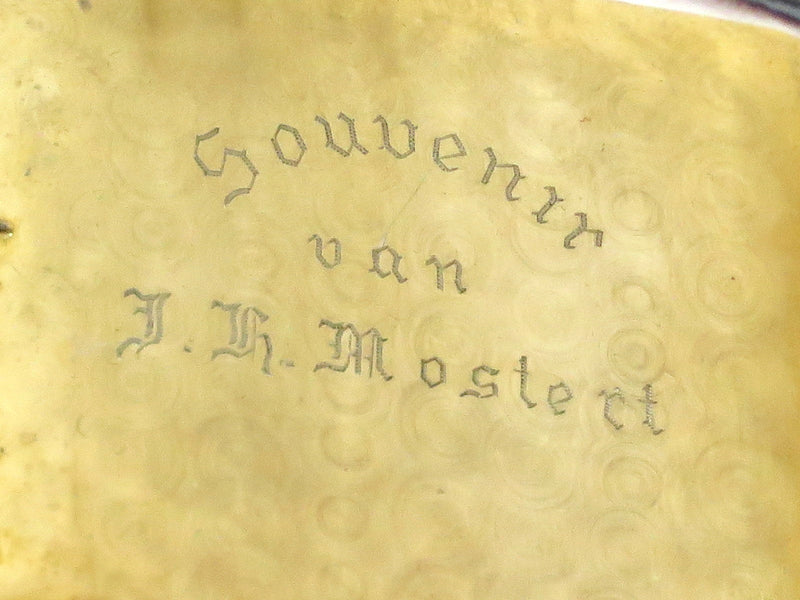 Souvenir
van
J. H. Mostert